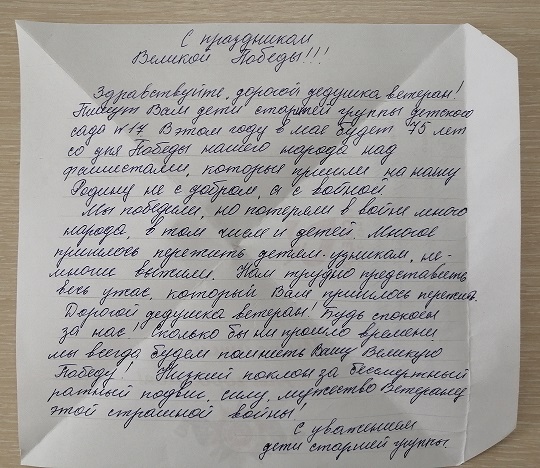 С праздником
Великой Победы!!!
Здравствуйте, дорогой дедушка ветеран!
Пишут Вам дети старшей группы детского
сада №17. В этом году в мае будет 75 лет
со дня Победы нашего народа над
фашистами, которые пришли на нашу
Родину не с добром, а с войной.
Мы победили, но потеряли в войне много
народа, в том числе и детей. Многое
пришлось пережить детям-узникам, не-
многие выжили. Нам трудно представить
весь ужас, который Вам пришлось пережить.
Дорогой дедушка ветеран! Будь спокоен
за нас! Сколько бы ни прошло времени
мы всегда будем помнить Вашу Великую
Победу! Низкий поклон за бессмертный
ратный подвиг, силу, мужество Ветерану
этой страшной войны!
С уважением
дети старшей группы.